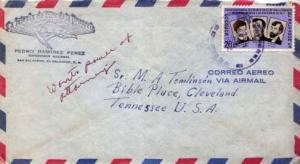 PEDRO RAMIREZ PEREZ
SAN SALVADOR, EL SALVADOR, C. A.
Wants power of
attorney
Sr. M. A. Tomlinson
Bible Place, Cleveland.
Tennessee U. S. A.
CORREO AEREO
VIA AIRMAIL